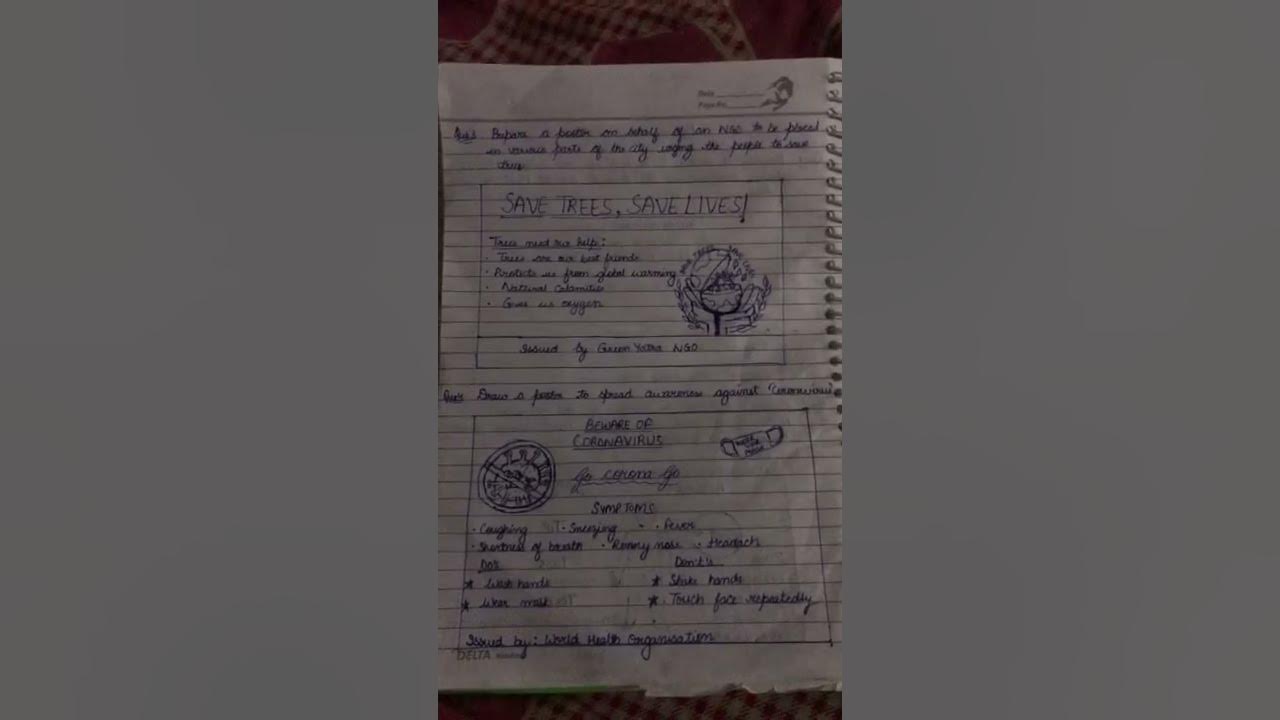 Date
Page No.
Ques Prepare a poster on behalf of an NGO to be placed
in various parts of the city urging the people to save
tree
SAVE TREES, SAVE LIVES!
Trees need our help:
· Trees are our best friends
· Protects us from global warming
· Natural Calamities
· Gives us oxygen
SAVE TREES SAVE LIVES
Issued by Green Yatra NGO
Ques Draw a poster to spread awareness against "Coronavirus"
BEWARE OF
CORONAVIRUS
Go corona Go
SYMPTOMS
· Coughing · Sneezing · Fever
· Shortness of breath · Runny nose · Headach
Dos Dont's
* Wash hands * Shake hands
* Wear mask * Touch face repeatedly
Issued by: World Health Organisation
DELTA